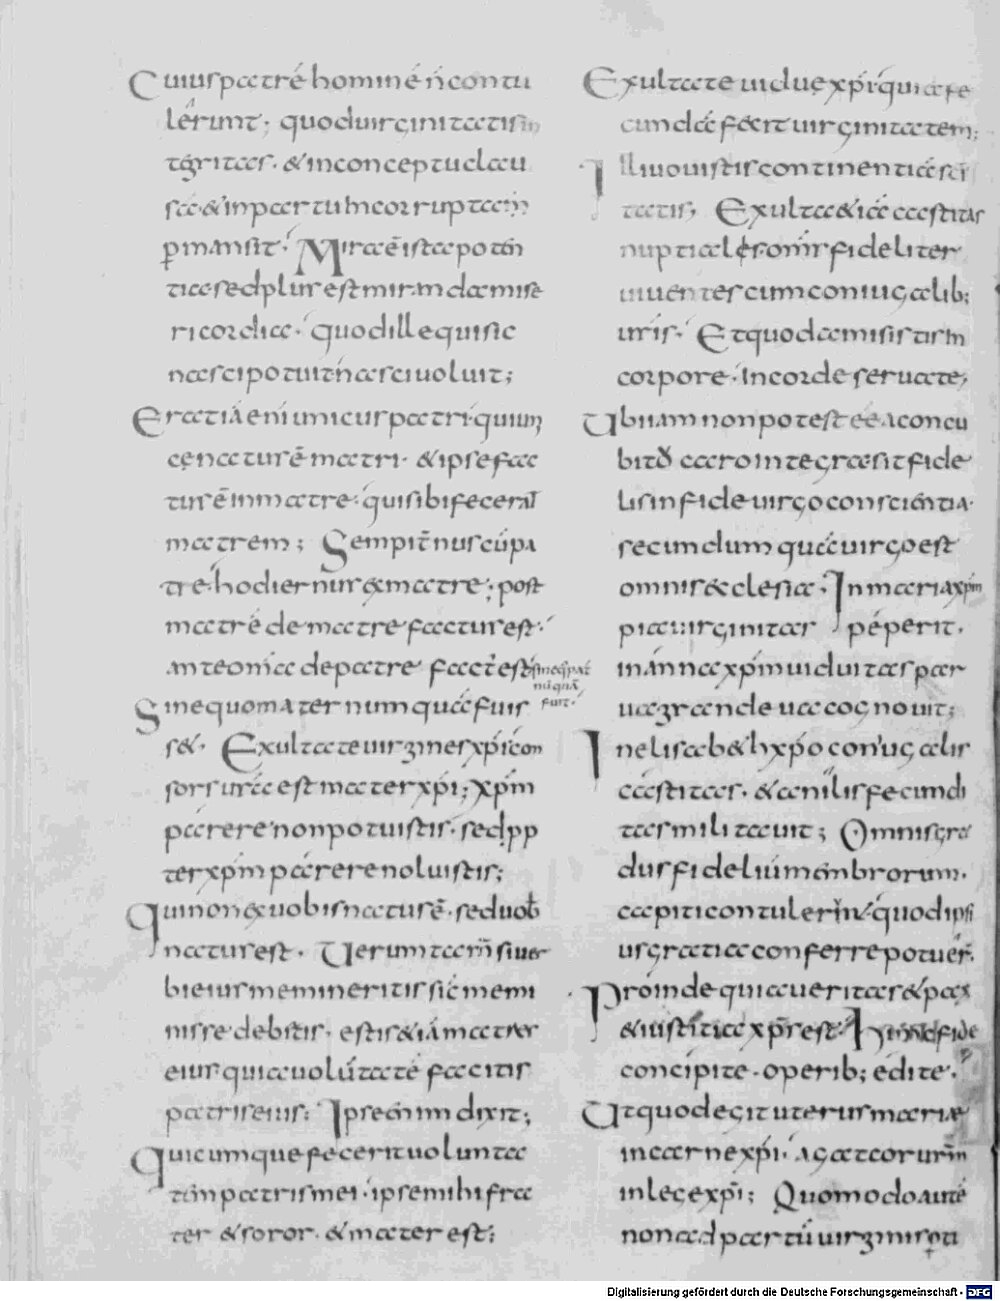 Cuiuspatrē hominē n̄ contu
lerunt; quod uirginitatis in
tegritas. & in conceptu clau
sa & in partu incorrupta
p̄mansit. Mira ē ista poten
tia sed plus est miranda mise
ricordia. quod ille qui sic
nasci potuit nasci uoluit;
Erat iā enī unicus patri. qui un
cenatus ē matri. & ipse fac
tus ē in matre. qui sibi fecerat
matrem; Sempit̄nus cū pa
tre. hodiernus ex matre; post
matrē de matre factus est.
ante omīa de patre fact̄ est
sine q̄ pat̄
nūquā
fuit.
Sine quo mater numquā fuis
s&. Exultate uirgines xp̄i con
sors ur̄a est mater xp̄i; xp̄m
parere non potuistis. sed pp
ter xp̄m parere noluistis;
Qui non ex uobis natus ē. sed uob̄
natus est. Uerum tam̄ si uer
bi eius memineritis sic memi
nisse debetis. estis & iā matres
eius quia uolūtatē facitis
patris eius. Ipse enim dixit;
Quicumque fecerit uolunta
tem patris mei. ipse mihi fra
ter & soror. & mater est;
Exultate uiduę xp̄i qui a fe
cundā fecit uirginitatem;
Illi uouistis continentiae sc̄i
tatis; Exulta & iā castitas
nuptialis. om̄s fideliter
uiuentes cum coniugalib;
uris. Et quod amisistis in
corpore. in corde seruate;
Ubi iam non potest ee a concu
bitu caro integra sit fide
lis in fide uirgo conscientia.
secundum quā uirgo est
omnis ecclesia. In maria xp̄m
pia uirginitas peperit.
in anna xp̄m uiduitas par
uū grandeua cognouit;
In elisab& h xp̄o coniugalis
castitas. & anilis fecundi
tas militauit; Omnis gra
dus fidelium membrorum.
capiti contulerunt quod ipsi
us gratia conferre potuer̄.
Proinde quia ueritas & pax
& iustitia xp̄s est. Hunc fide
concipite. operib; edite.
Ut quod egit uterus mariae
in carne xp̄i. agat cor ur̄m
in lege xp̄i; Quomodo autē
non ad partū uirginis pti